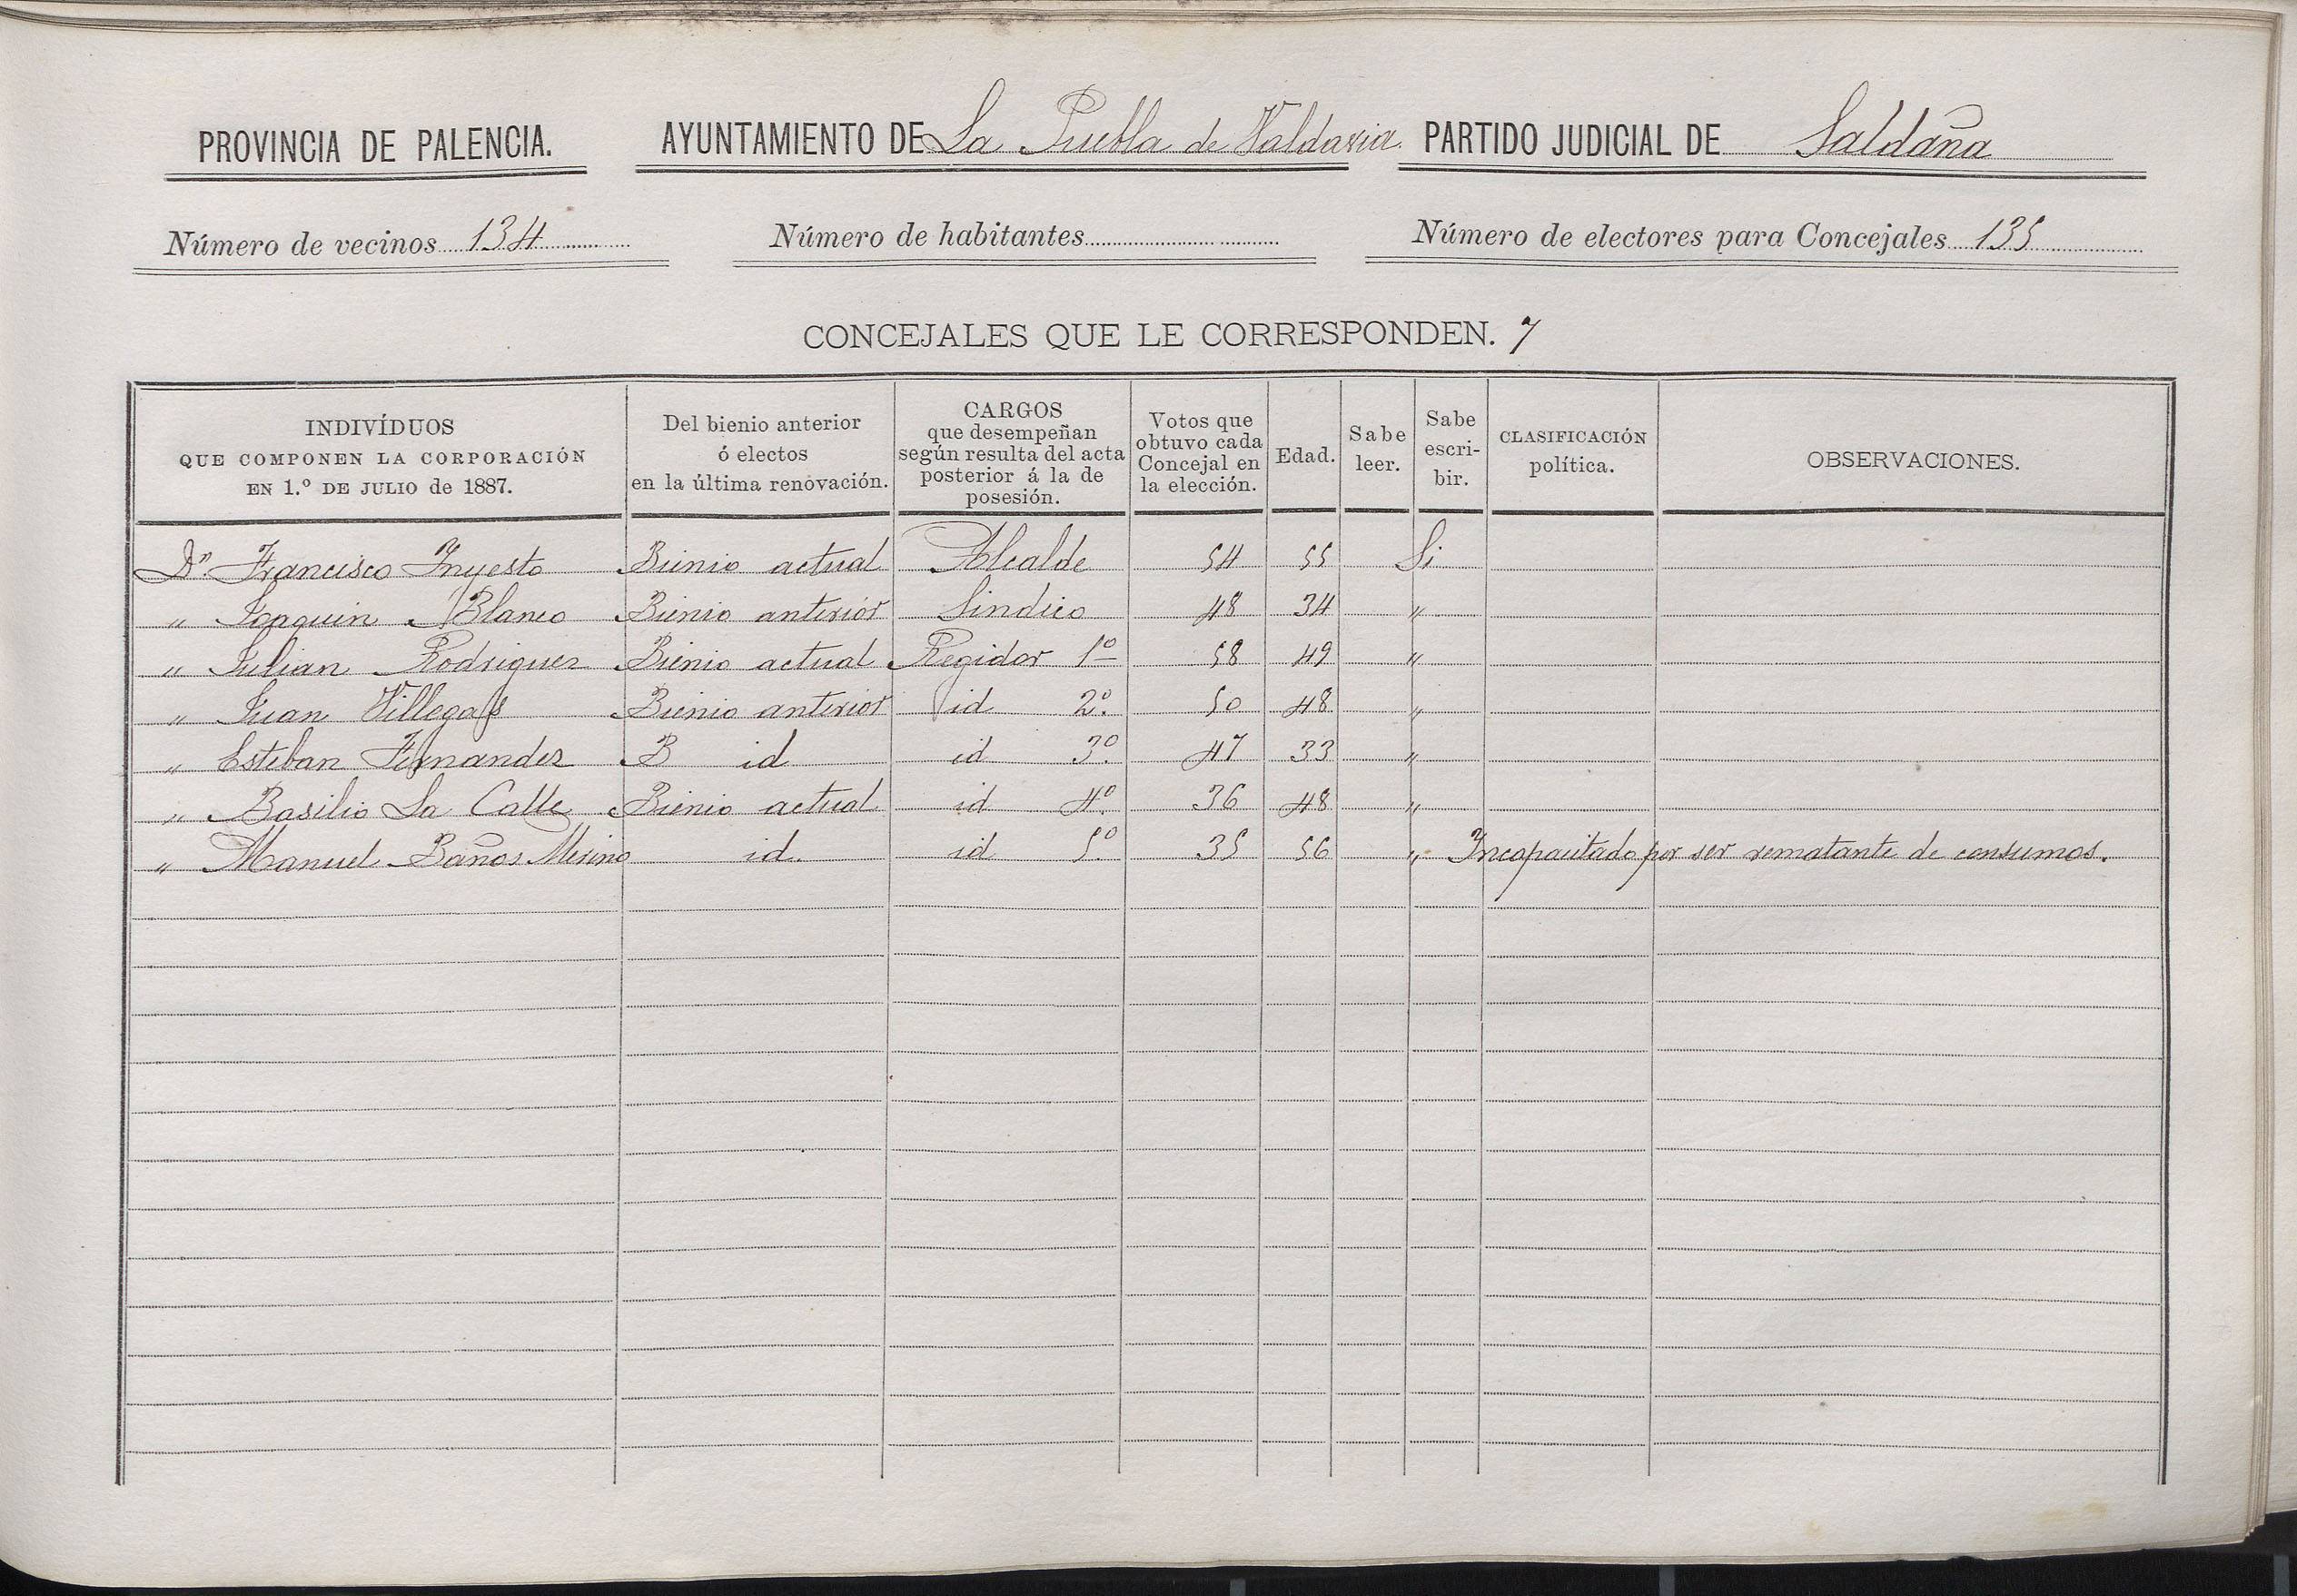 PROVINCIA DE PALENCIA. AYUNTAMIENTO DE La Puebla de Valdavia. PARTIDO JUDICIAL DE Saldaña
Número de vecinos 134 Número de habitantes Número de electores para Concejales 135
CONCEJALES QUE LE CORRESPONDEN. 7
INDIVÍDUOS
QUE COMPONEN LA CORPORACIÓN
EN 1.º DE JULIO de 1887.
Del bienio anterior
ó electos
en la última renovación.
CARGOS
que desempeñan
según resulta del acta
posterior á la de
posesión.
Votos que
obtuvo cada
Concejal en
la elección.
Edad.
Sabe
leer.
Sabe
escri-
bir.
CLASIFICACIÓN
política.
OBSERVACIONES.
Dn. Francisco Inyesto Bienio actual Alcalde 54 55 Si
" Joaquin Blanco Bienio anterior Sindico 48 34 "
" Julian Rodriguez Bienio actual Regidor 1º 58 49 "
" Juan Villegas Bienio anterior id 2º. 50 48 "
" Esteban Fernandez B id id 3º. 47 33 "
" Basilio La Calle Bienio actual id 4º. 36 48 "
" Manuel Baños Merino id. id 5º. 35 56 " Incapacitado por ser rematante de consumos.